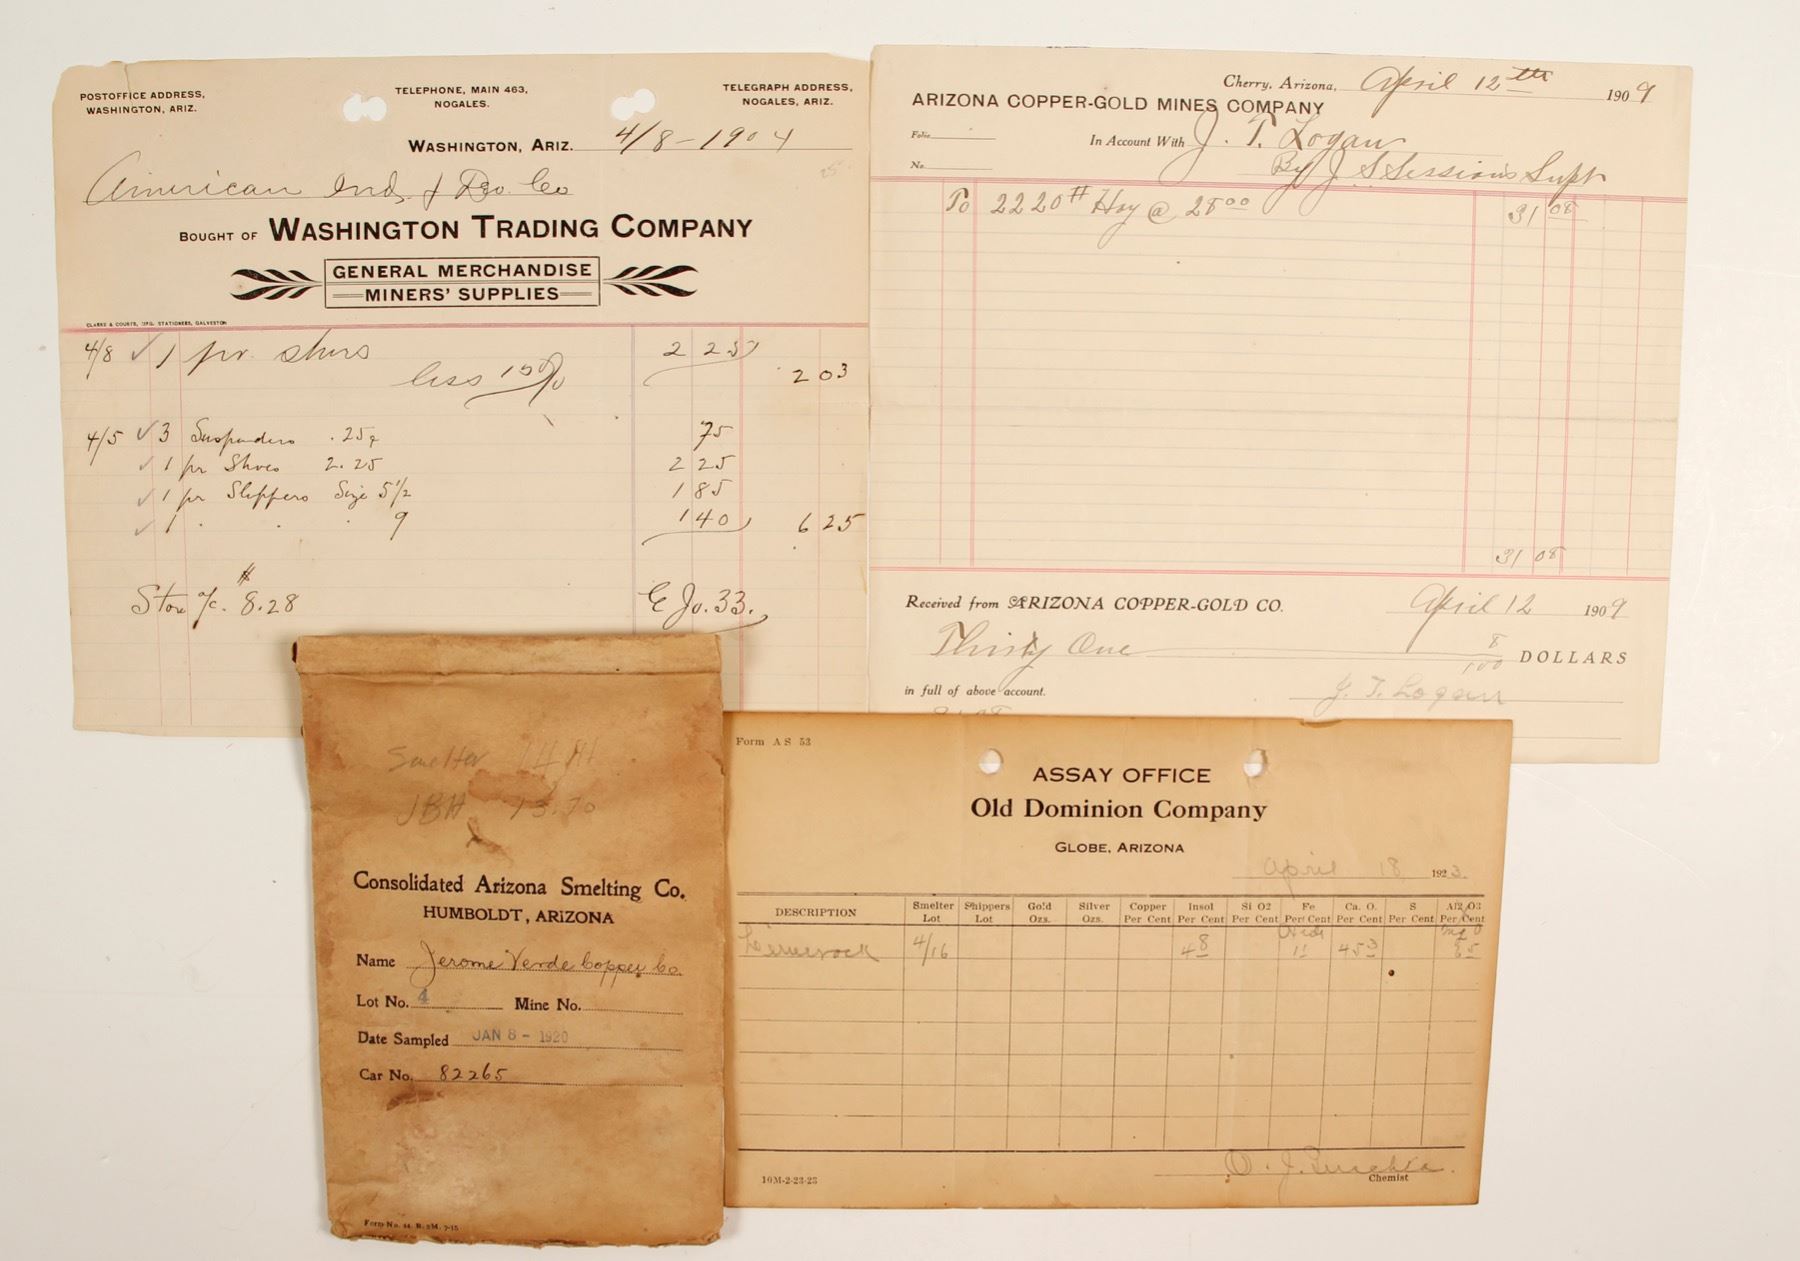 POSTOFFICE ADDRESS,
WASHINGTON, ARIZ.
TELEPHONE, MAIN 463,
NOGALES.
TELEGRAPH ADDRESS,
NOGALES, ARIZ.
WASHINGTON, ARIZ. 4/8-1904
American Ind. & Dev. Co
BOUGHT OF WASHINGTON TRADING COMPANY
GENERAL MERCHANDISE
MINERS' SUPPLIES
CLARKE & COURTS, MFG. STATIONERS, GALVESTON
4/8 ✓ 1 pr. shoes 2 25
less 10% 2 03
4/5 ✓ 3 Suspenders .25 75
✓ 1 pr Shoes 2.25 2 25
✓ 1 pr Slippers Size 5 1/2 1 85
✓ 1 . . . 9 1 40 6 25
Store a/c. # 8.28 Jo. 33.
Cherry, Arizona, April 12th 1909
ARIZONA COPPER-GOLD MINES COMPANY
Folio
In Account With J. T. Logan
No. By J S Sessions Supt
To 2220# Hay @ 28 00 31 08
31 08
Received from ARIZONA COPPER-GOLD CO. April 12 1909
Thirty One 8/100 DOLLARS
in full of above account. J. T. Logan
Smelter
JBH 13.70
Consolidated Arizona Smelting Co.
HUMBOLDT, ARIZONA
Name Jerome Verde Copper Co
Lot No. 4 Mine No.
Date Sampled JAN 8 - 1920
Car No. 82265
Form No. 44. R. 2M. 7-15
Form A S 53
ASSAY OFFICE
Old Dominion Company
GLOBE, ARIZONA
April 18, 1923.
DESCRIPTION Smelter Lot Shippers Lot Gold Ozs. Silver Ozs. Copper Per Cent Insol Per Cent Si O2 Per Cent Fe Per Cent Ca. O. Per Cent S Per Cent Al2 O3 Per Cent
Limerock 4/16 48 11 453 MgO 85
Chemist
10M-2-23-23